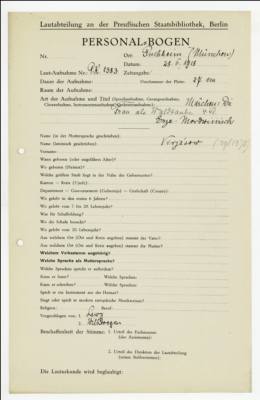 Lautabteilung an der Preußischen Staatsbibliothek, Berlin
PERSONAL-BOGEN
Nr. Ort: Puchheim (München)
Datum: 21. 5. 1918
Laut-Aufnahme Nr.: PK 1383 Zeitangabe:
Dauer der Aufnahme: Durchmesser der Platte: 27 cm
Raum der Aufnahme:
Art der Aufnahme und Titel (Sprechaufnahme, Gesangsaufnahme, Märchen
Choraufnahme, Instrumentenaufnahme, Orchesteraufnahme):
Frau als Waldtaube
Erza-Mordwinisch
Name (in der Muttersprache geschrieben):
Name (lateinisch geschrieben):
Vorname:
Wann geboren (oder ungefähres Alter)?
Wo geboren (Heimat)?
Welche größere Stadt liegt in der Nähe des Geburtsortes?
Kanton — Kreis (Ujedz):
Department — Gouvernement (Gubernija) — Grafschaft (County):
Wo gelebt in den ersten 6 Jahren?
Wo gelebt vom 7. bis 20. Lebensjahr?
Was für Schulbildung?
Wo die Schule besucht?
Wo gelebt vom 20. Lebensjahr?
Aus welchem Ort (Ort und Kreis angeben) stammt der Vater?
Aus welchem Ort (Ort und Kreis angeben) stammt die Mutter?
Welchem Volksstamm angehörig?
Welche Sprache als Muttersprache?
Welche Sprachen spricht er außerdem?
Kann er lesen? Welche Sprachen?
Kann er schreiben? Welche Sprachen?
Spielt er ein Instrument aus der Heimat?
Singt oder spielt er moderne europäische Musikweisen?
Religion: Beruf:
Vorgeschlagen von: 1. Lewy
2.
Beschaffenheit der Stimme: 1. Urteil des Fachmannes
(des Assistenten):
2. Urteil des Direktors der Lautabteilung
(seines Stellvertreters):
Die Lauturkunde wird beglaubigt: